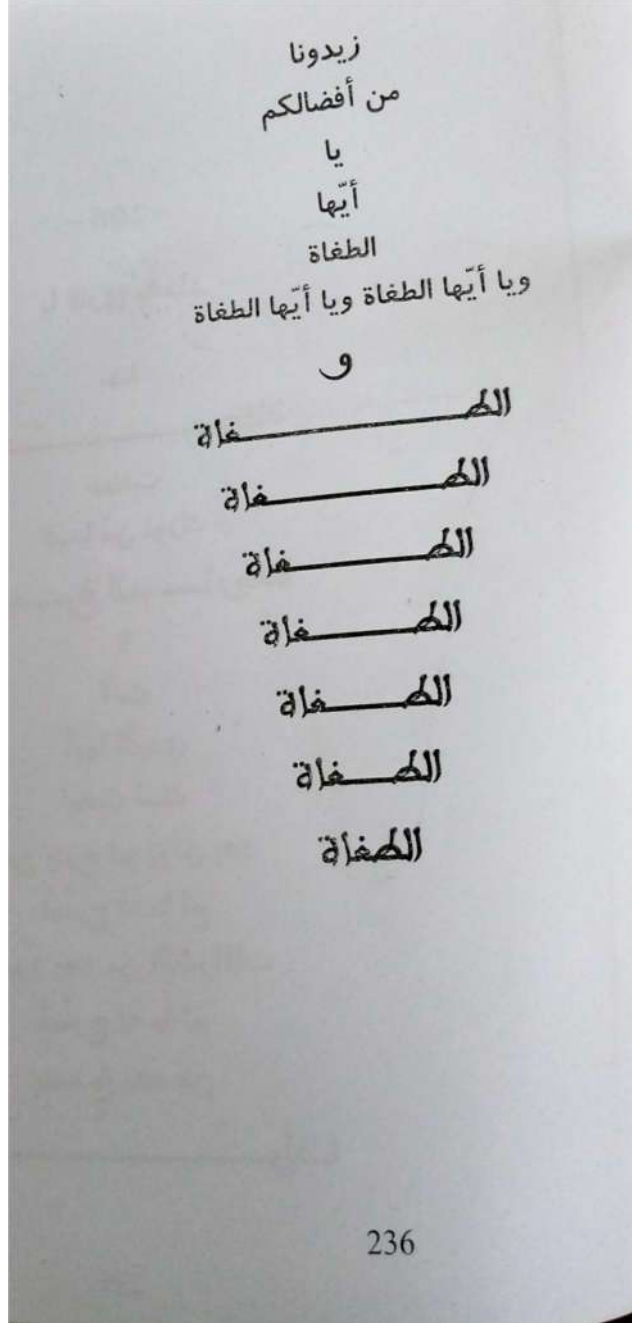 زيدونا
من أفضالكم
يا
أيّها
الطغاة
ويا أيّها الطغاة ويا أيّها الطغاة
و
الطـــــــــــــــــغاة
الطـــــــــــــــغاة
الطـــــــــــــغاة
الطـــــــــــغاة
الطــــــــغاة
الطـــــغاة
الطغاة
236